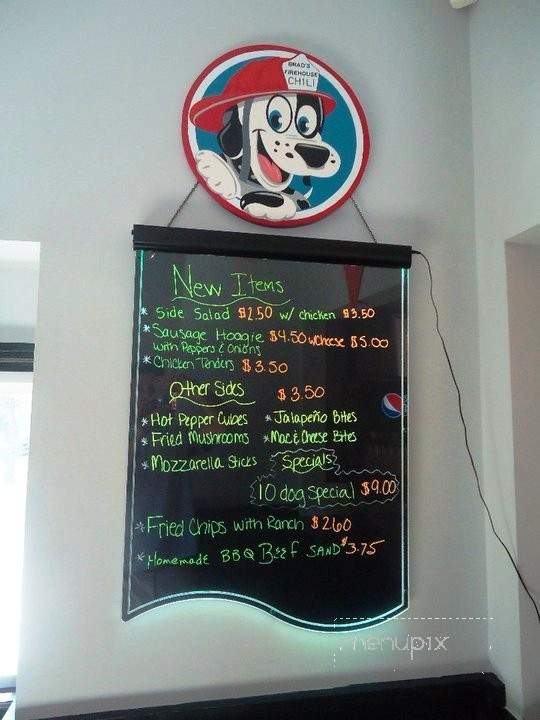 BRAD'S
FIREHOUSE
CHILI
New Items
* Side Salad $2.50 w/ chicken $3.50
* Sausage Hoagie $4.50 w/cheese $5.00
with Peppers & Onions
* Chicken Tenders $3.50
Other Sides $3.50
* Hot Pepper Cubes * Jalapeño Bites
* Fried Mushrooms * Mac & Cheese Bites
* Mozzarella Sticks Specials
10 dog special $9.00
* Fried Chips with Ranch $2.60
* Homemade BBQ Beef SAND $3.75
menupix